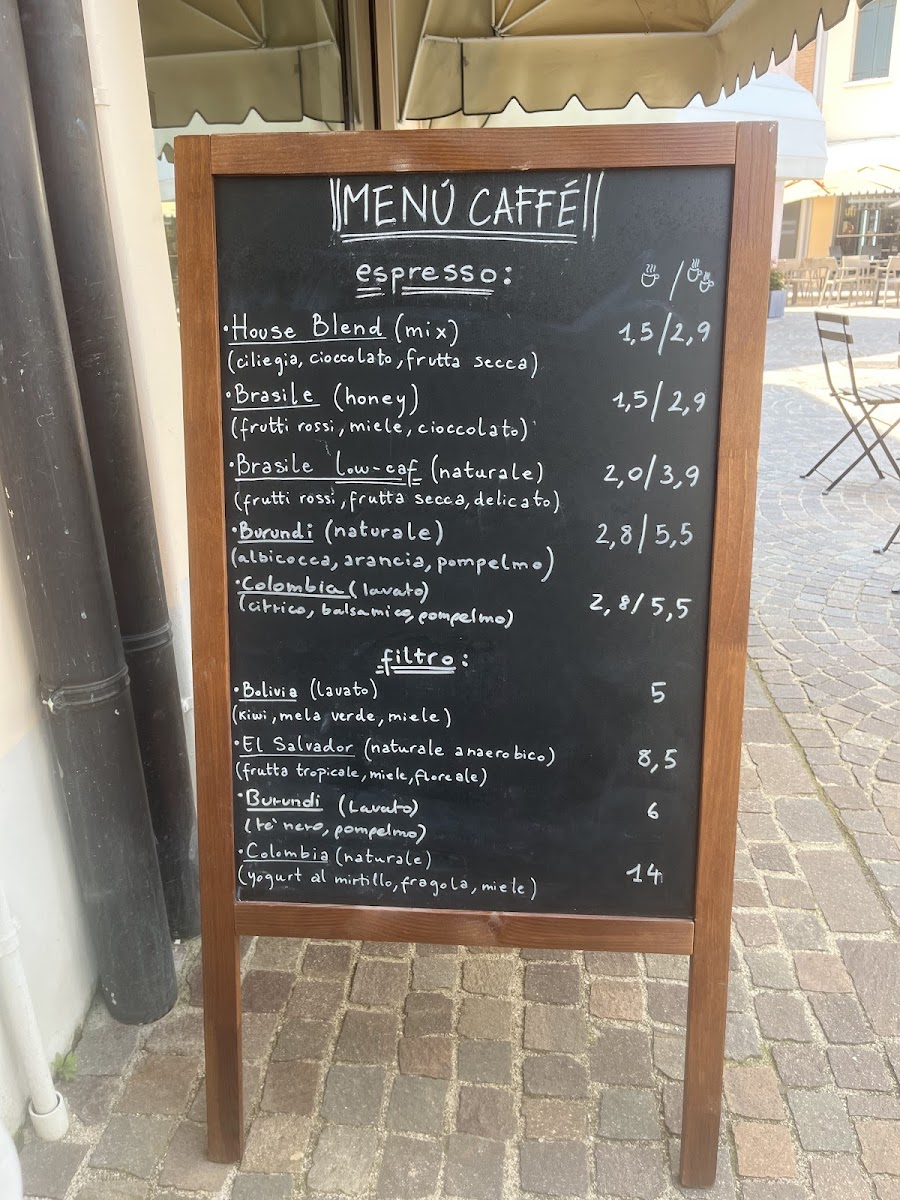 MENÚ CAFFÉ
espresso:
•House Blend (mix) 1,5/2,9
(ciliegia, cioccolato, frutta secca)
•Brasile (honey) 1,5/2,9
(frutti rossi, miele, cioccolato)
•Brasile low-caf (naturale) 2,0/3,9
(frutti rossi, frutta secca, delicato)
•Burundi (naturale) 2,8/5,5
(albicocca, arancia, pompelmo)
•Colombia (lavato) 2,8/5,5
(citrico, balsamico, pompelmo)
filtro:
•Bolivia (lavato) 5
(kiwi, mela verde, miele)
•El Salvador (naturale anaerobico) 8,5
(frutta tropicale, miele, floreale)
•Burundi (Lavato) 6
(te' nero, pompelmo)
•Colombia (naturale) 14
(yogurt al mirtillo, fragola, miele)